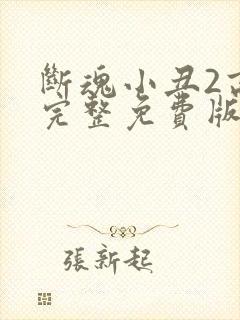 斷魂小丑2
完整免費版
張新起